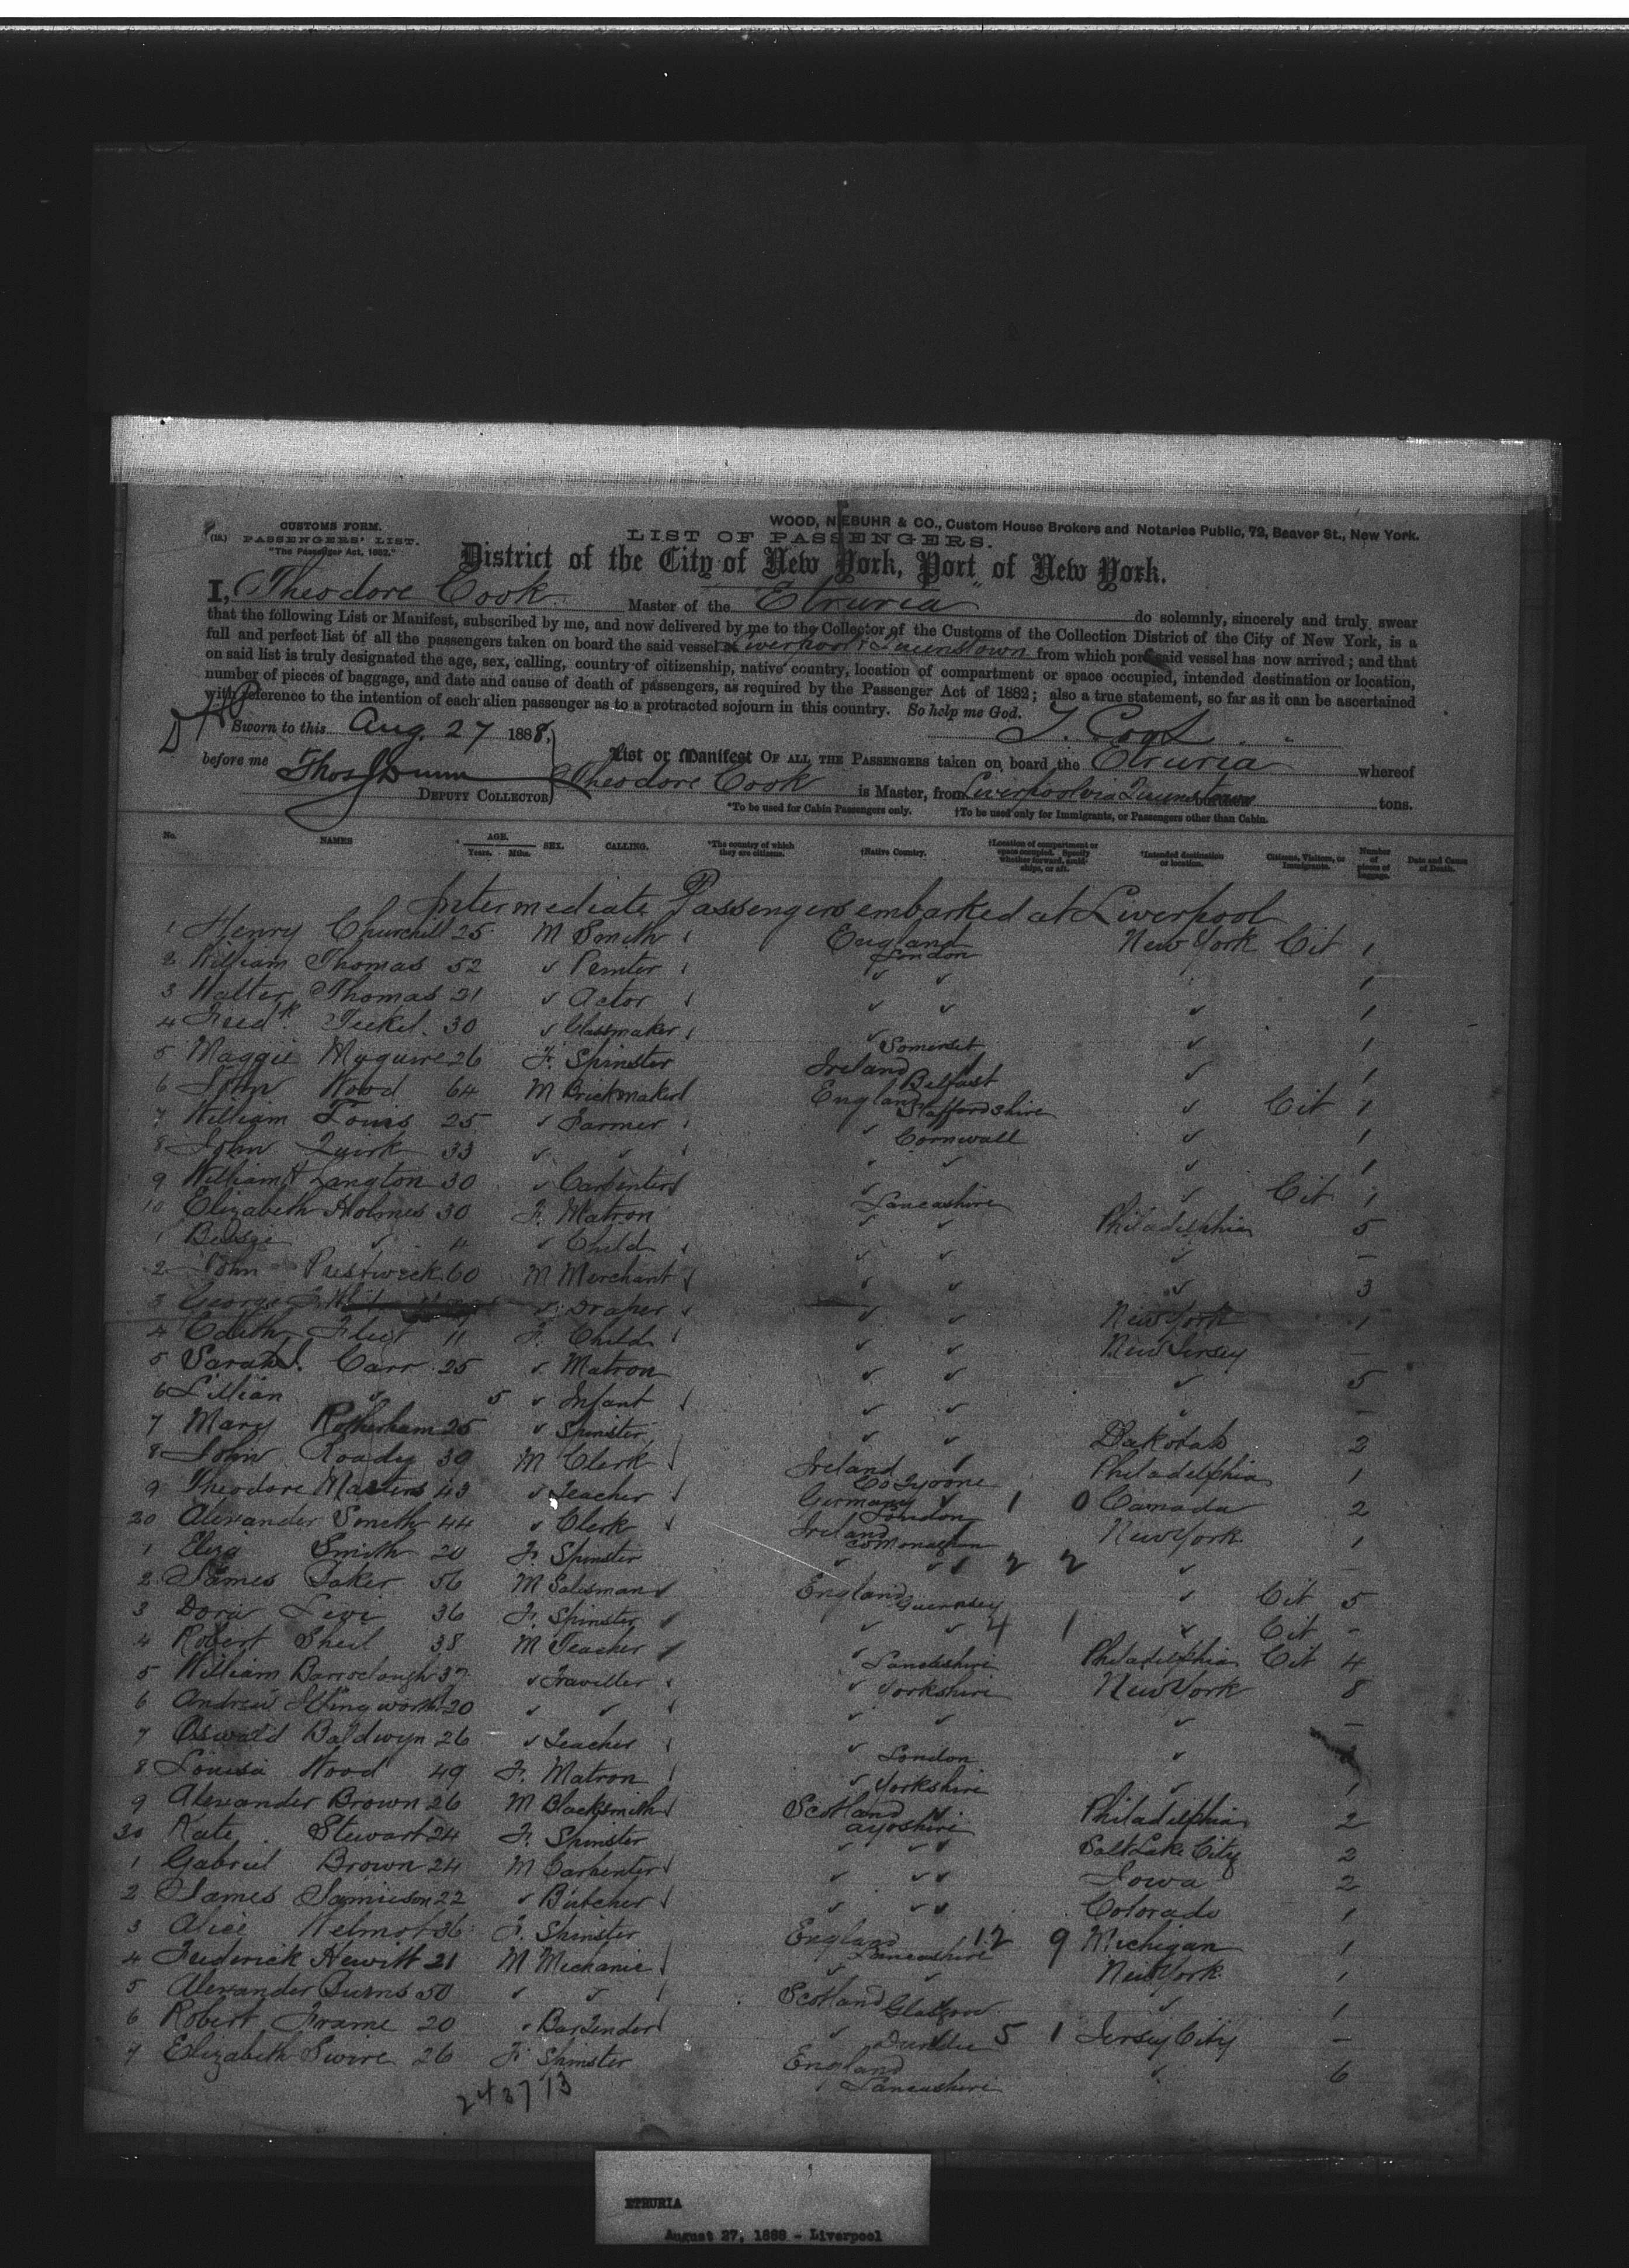 CUSTOMS FORM.
(18.) PASSENGERS' LIST.
"The Passenger Act, 1882."
WOOD, NIEBUHR & CO., Custom House Brokers and Notaries Public, 72, Beaver St., New York.
LIST OF PASSENGERS.
District of the City of New York, Port of New York.
I, Theodore Cook Master of the Etruria do solemnly, sincerely and truly swear
that the following List or Manifest, subscribed by me, and now delivered by me to the Collector of the Customs of the Collection District of the City of New York, is a
full and perfect list of all the passengers taken on board the said vessel at Liverpool & Queenstown from which port said vessel has now arrived; and that
on said list is truly designated the age, sex, calling, country of citizenship, native country, location of compartment or space occupied, intended destination or location,
number of pieces of baggage, and date and cause of death of passengers, as required by the Passenger Act of 1882; also a true statement, so far as it can be ascertained
with reference to the intention of each alien passenger as to a protracted sojourn in this country. So help me God.
Sworn to this Aug. 27 1888. T. Cook
before me Thos J Dunn
DEPUTY COLLECTOR
List or Manifest OF ALL THE PASSENGERS taken on board the Etruria whereof
Theodore Cook is Master, from Liverpool via Queenstown burthen tons.
*To be used for Cabin Passengers only. †To be used only for Immigrants, or Passengers other than Cabin.
No. NAMES AGE. Years. Mths. SEX. CALLING. *The country of which they are citizens. †Native Country. †Location of compartment or space occupied. Specify whether forward, amidships, or aft. *Intended destination or location. Citizens, Visitors, or Immigrants. Number of pieces of baggage. Date and Cause of Death.
Intermediate Passengers embarked at Liverpool
1 Henry Churchill 25 M Smith England London New York Cit 1
2 William Thomas 52 " " " 1
3 Walter Thomas 21 " Actor " " " 1
4 Fredk 30 " Glassmaker " Somerset " 1
5 Maggie Maguire 26 F. Spinster Ireland Belfast " 1
6 John Wood 64 M Brickmaker England Staffordshire " Cit 1
7 William 25 " Farmer " Cornwall " 1
8 John Quirk 33 " " " " " 1
9 William H Langton 30 " Carpenter " Lancashire " Cit 1
10 Elizabeth Holmes 30 F. Matron " " Philadelphia 5
1 Bessie " 4 " Child " " " –
2 John Prestwick 60 M Merchant " " " 3
3 George " Draper " " New York 1
4 Edith 11 F. Child " " New Jersey –
5 Sarah J. Carr 25 " Matron " " " 5
6 Lillian " 5 " Infant " " " –
7 Mary Rotherham 25 " Spinster " " Dakota 2
8 John Roady 39 M Clerk Ireland Co Tyrone Philadelphia 1
9 Theodore Masters 43 " Teacher Germany London 1 0 Canada 2
20 Alexander Smith 44 " Clerk Ireland Co Monaghan New York 1
1 Eliza Smith 20 F. Spinster " " 1 2 2 " –
2 James 56 M Salesman England Guernsey " Cit 5
3 Dora Levi 36 F. Spinster " " 4 1 " Cit –
4 Robert Sheil 38 M Teacher " Lancashire Philadelphia Cit 4
5 William Barraclough 37 " Traveller " Yorkshire New York 8
6 Andrew Illingworth 20 " " " " " –
7 Oswald Baldwyn 26 " Teacher " London "
8 Louisa Wood 49 F. Matron " Yorkshire " 1
9 Alexander Brown 26 M Blacksmith Scotland Ayrshire Philadelphia 2
30 Kate Stewart 24 F. Spinster " " Salt Lake City 2
1 Gabriel Brown 24 M Carpenter " " Iowa 2
2 James Jamieson 22 " Butcher " " Colorado 1
3 Alice 36 F. Spinster England Lancashire 12 9 Michigan 1
4 Frederick Hewitt 21 M Mechanic " " New York 1
5 Alexander Burns 50 " " Scotland Glasgow " 1
6 Robert Frame 20 " Bartender " Dundee 5 1 Jersey City –
7 Elizabeth Swire 26 F. Spinster England Lancashire " 6
243713
ETRURIA
August 27, 1888 - Liverpool